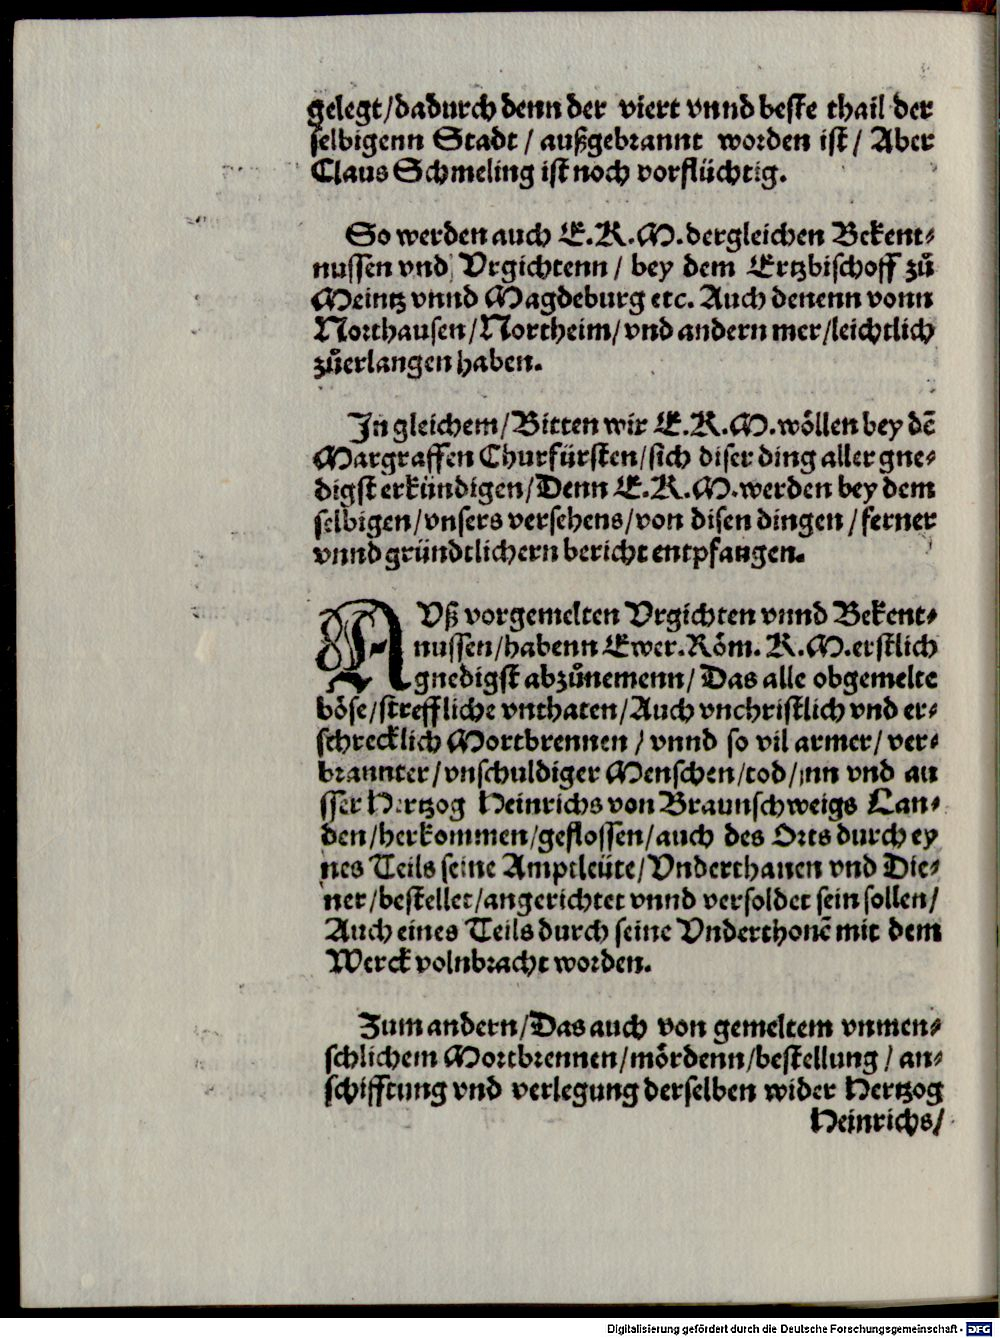 gelegt/dadurch denn der viert vnnd beste thail der
selbigenn Stadt / außgebrannt worden ist / Aber
Claus Schmeling ist noch vorflüchtig.
So werden auch E.K.M. dergleichen Bekent-
nussen vnd Vrgichtenn / bey dem Ertzbischoff zů
Meintz vnnd Magdeburg etc. Auch denenn vonn
Northausen/Northeim/vnd andern mer/leichtlich
zůerlangen haben.
In gleichem/Bitten wir E.K.M. wöllen bey dē
Margraffen Churfürsten/sich diser ding aller gne-
digst erkündigen/Denn E.K.M. werden bey dem
selbigen/vnsers versehens/von disen dingen /ferner
vnnd gründtlichern bericht entpfangen.
AVß vorgemelten Vrgichten vnnd Bekent-
nussen/habenn Ewer.Röm. K.M.erstlich
gnedigst abzůnemenn/ Das alle obgemelte
böse/streffliche vnthaten/Auch vnchristlich vnd er-
schrecklich Mortbrennen / vnnd so vil armer/ ver-
brannter/vnschuldiger Menschen/tod/inn vnd au
sser Hertzog Heinrichs von Braunschweigs Lan-
den/herkommen/geflossen/auch des Orts durch ey
nes Teils seine Amptleüte/Vnderthanen vnd Die-
ner/bestellet/angerichtet vnnd versoldet sein sollen/
Auch eines Teils durch seine Vnderthonē mit dem
Werck volnbracht worden.
Zum andern/Das auch von gemeltem vnmen-
schlichem Mortbrennen/mördenn/bestellung / an-
schifftung vnd verlegung derselben wider Hertzog
Heinrichs/
Digitalisierung gefördert durch die Deutsche Forschungsgemeinschaft - DFG